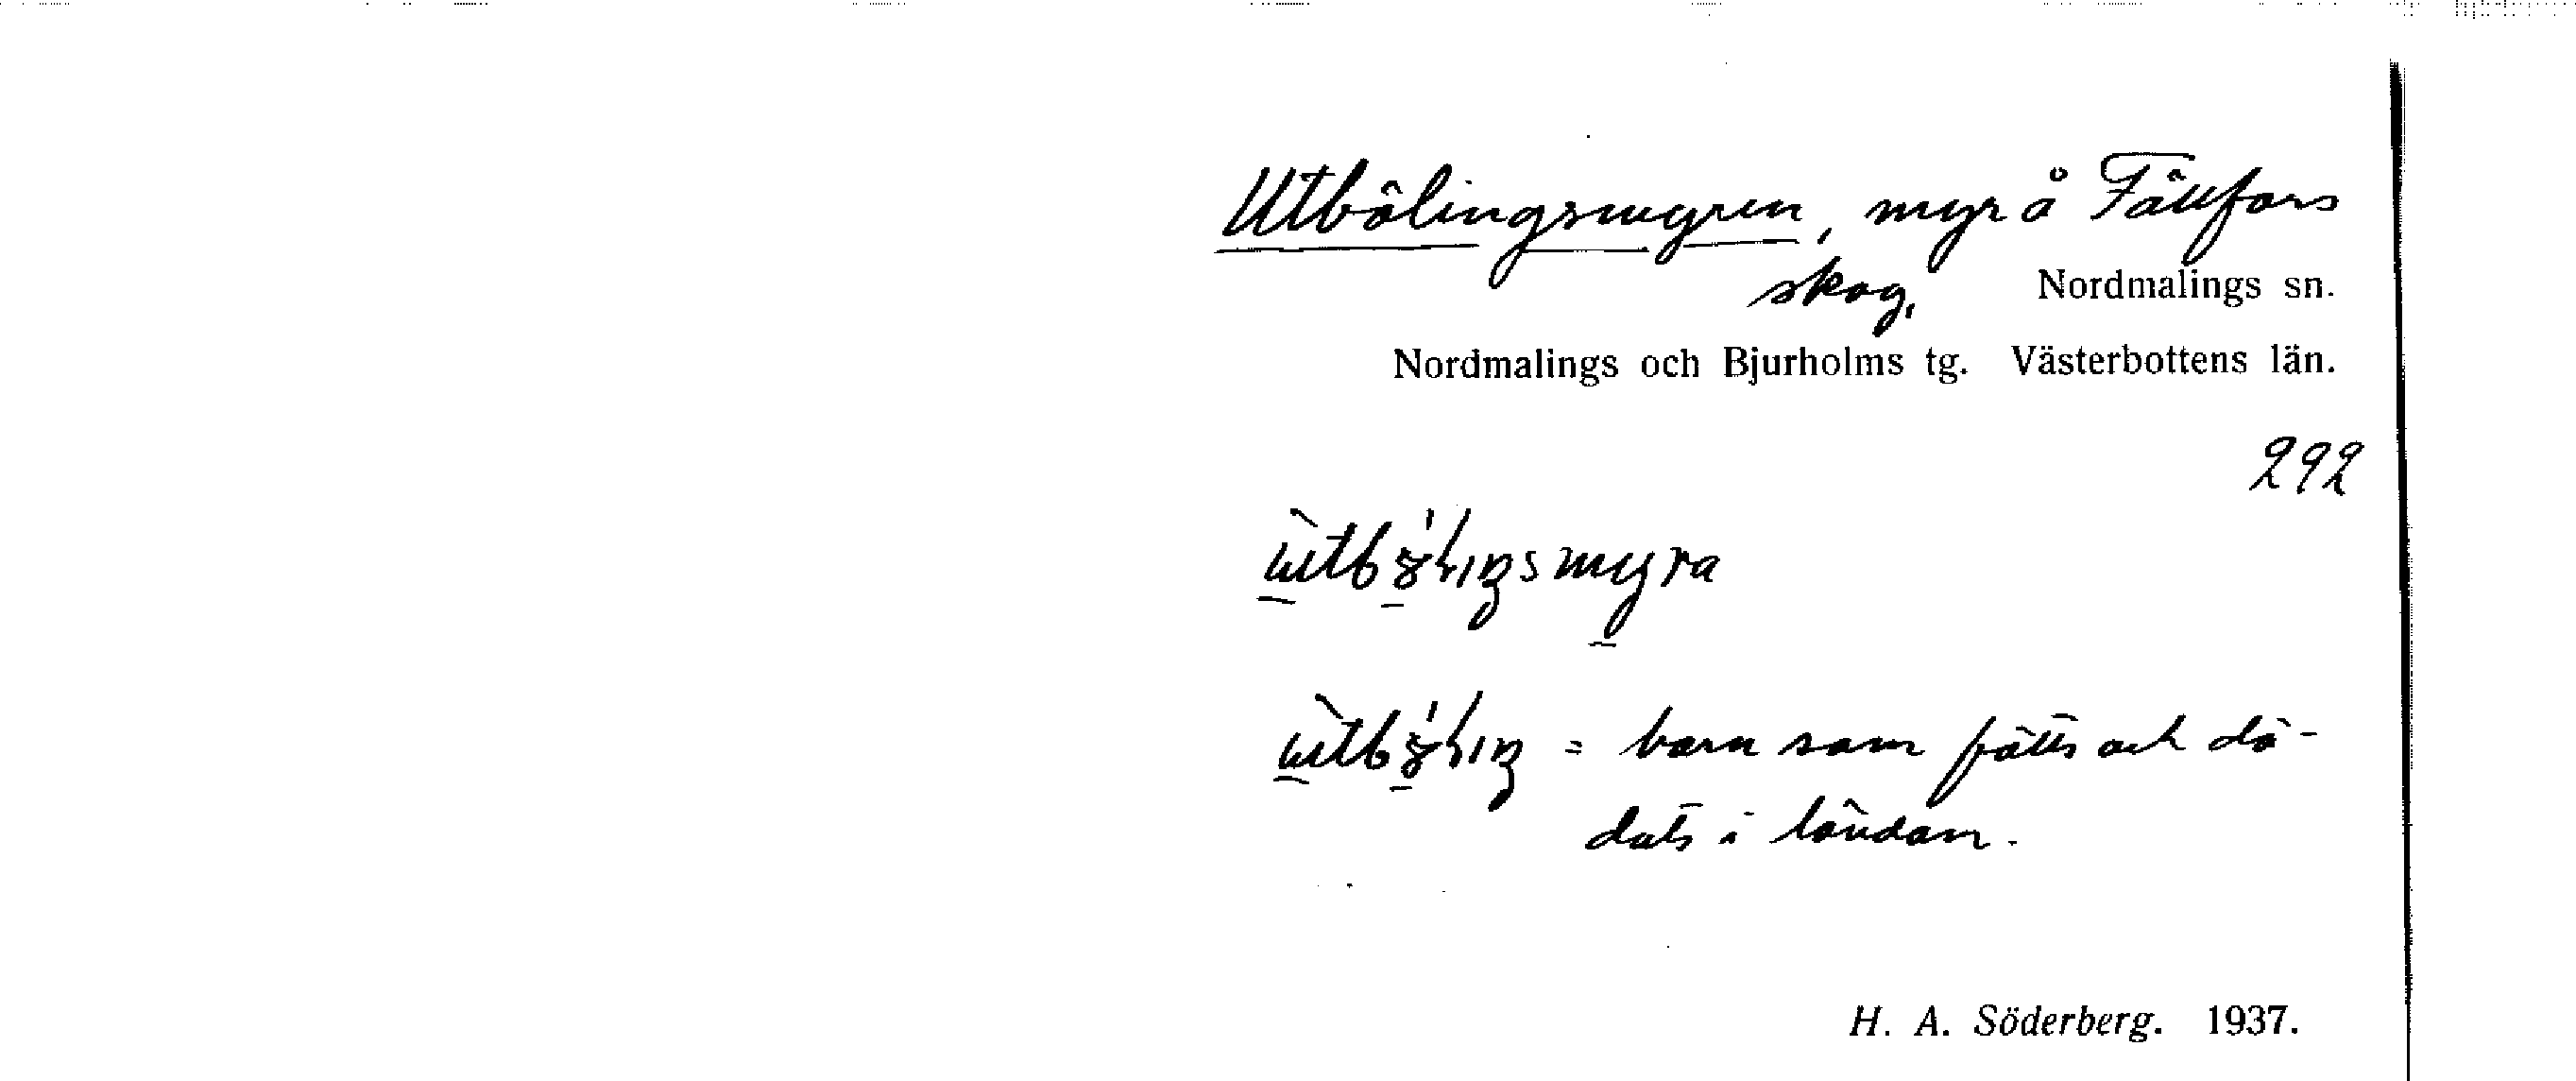 Utbölingsmyren, myr å Fällfors
skog, Nordmalings sn.
Nordmalings och Bjurholms tg. Västerbottens län.
292
= barn som fötts och dö-
dats i lönndom.
H. A. Söderberg. 1937.